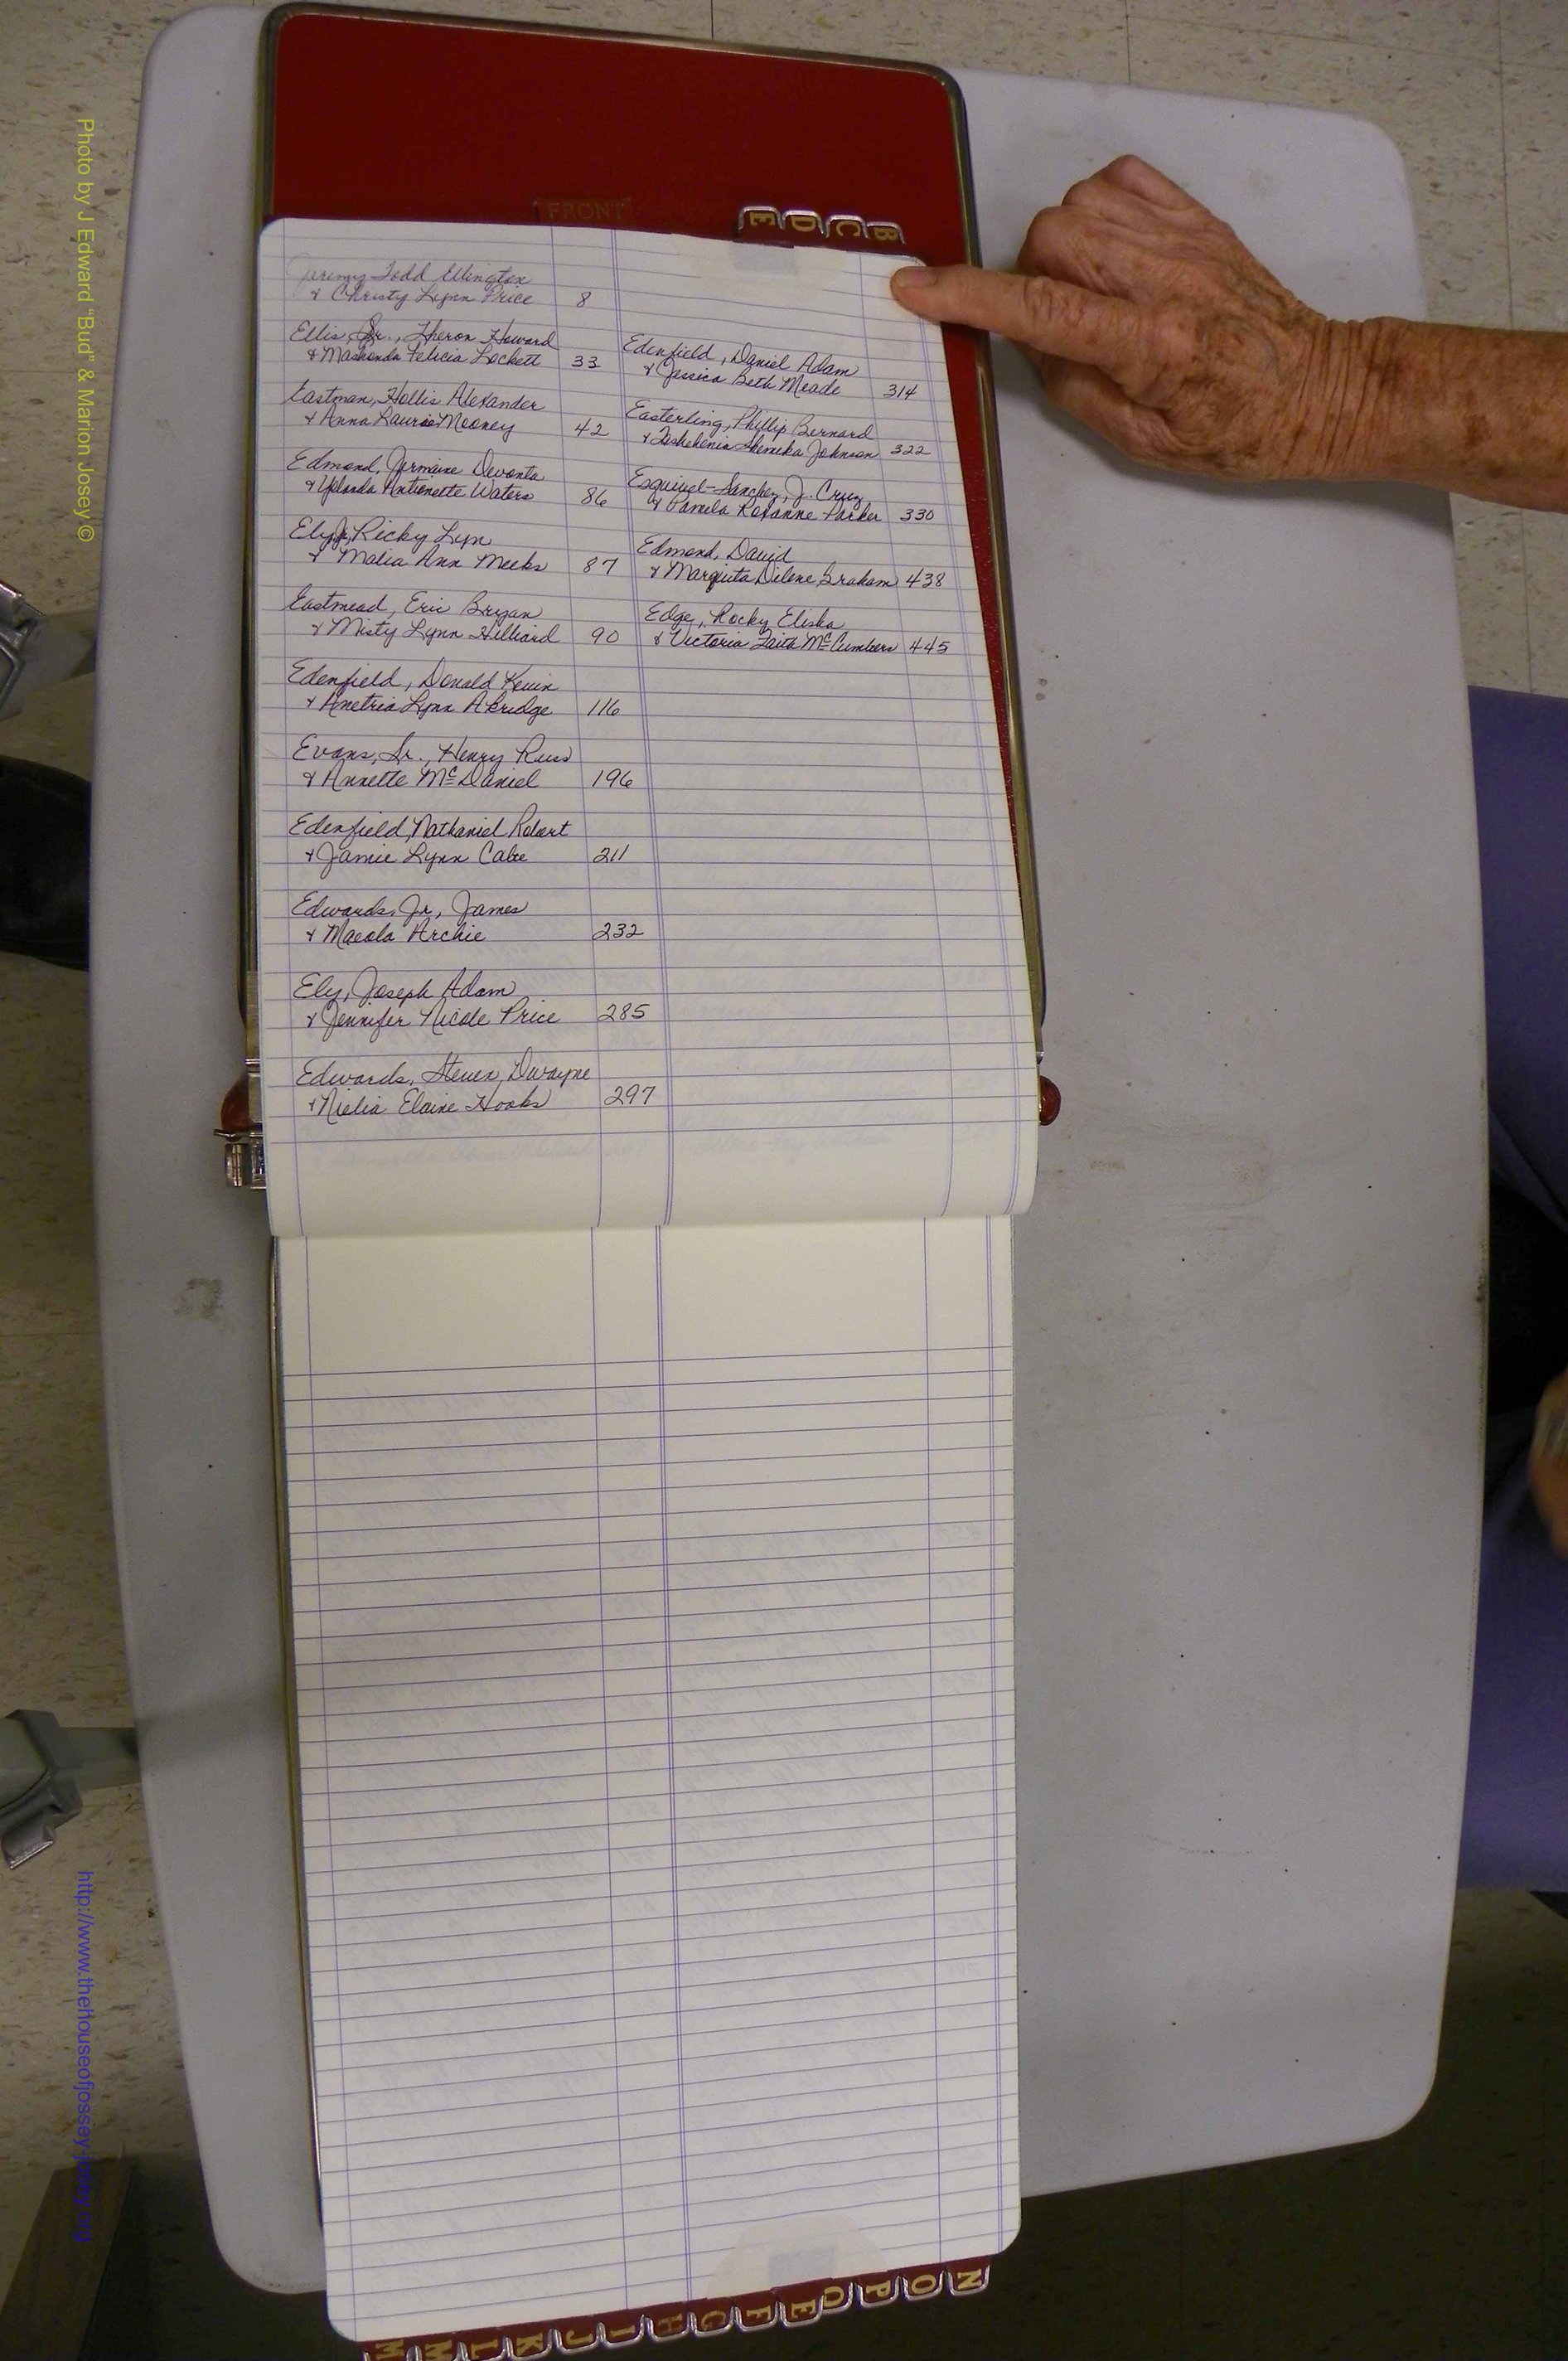 FRONT
E D C B
Jeremy Todd Ellington
& Christy Lynn Price 8
Ellis, Sr., Theron Howard
& Mashonda Felicia Lockett 33
Eastman, Hollis Alexander
& Anna Laurie Mooney 42
Edmond, Jermaine Devonta
& Yolanda Antionette Waters 86
Ely, Jr, Ricky Lyn
& Malia Ann Meeks 87
Eastmead, Eric Bryan
& Misty Lynn Hilliard 90
Edenfield, Donald Kevin
& Anetria Lynn Akridge 116
Evans, Sr., Henry Russ
& Annette McDaniel 196
Edenfield, Nathaniel Robert
& Jamie Lynn Cabe 211
Edwards, Jr, James
& Maeola Archie 232
Ely, Joseph Adam
& Jennifer Nicole Price 285
Edwards, Steven Dwayne
& Nielia Elaine Hooks 297
Edenfield, Daniel Adam
& Jessica Beth Meade 314
Easterling, Phillip Bernard
& Johnson 322
Esquivel-Sanchez, J. Cruz
& Pamela Roxanne Parker 330
Edmond, David
& Marquita Dilene Graham 438
Edge, Rocky Elisha
& Victoria Faith McCumbers 445
M M L K J I H G F E Q P O N
Photo by J Edward "Bud" & Marion Josey ©
http://www.thehouseofjossey-josey.org